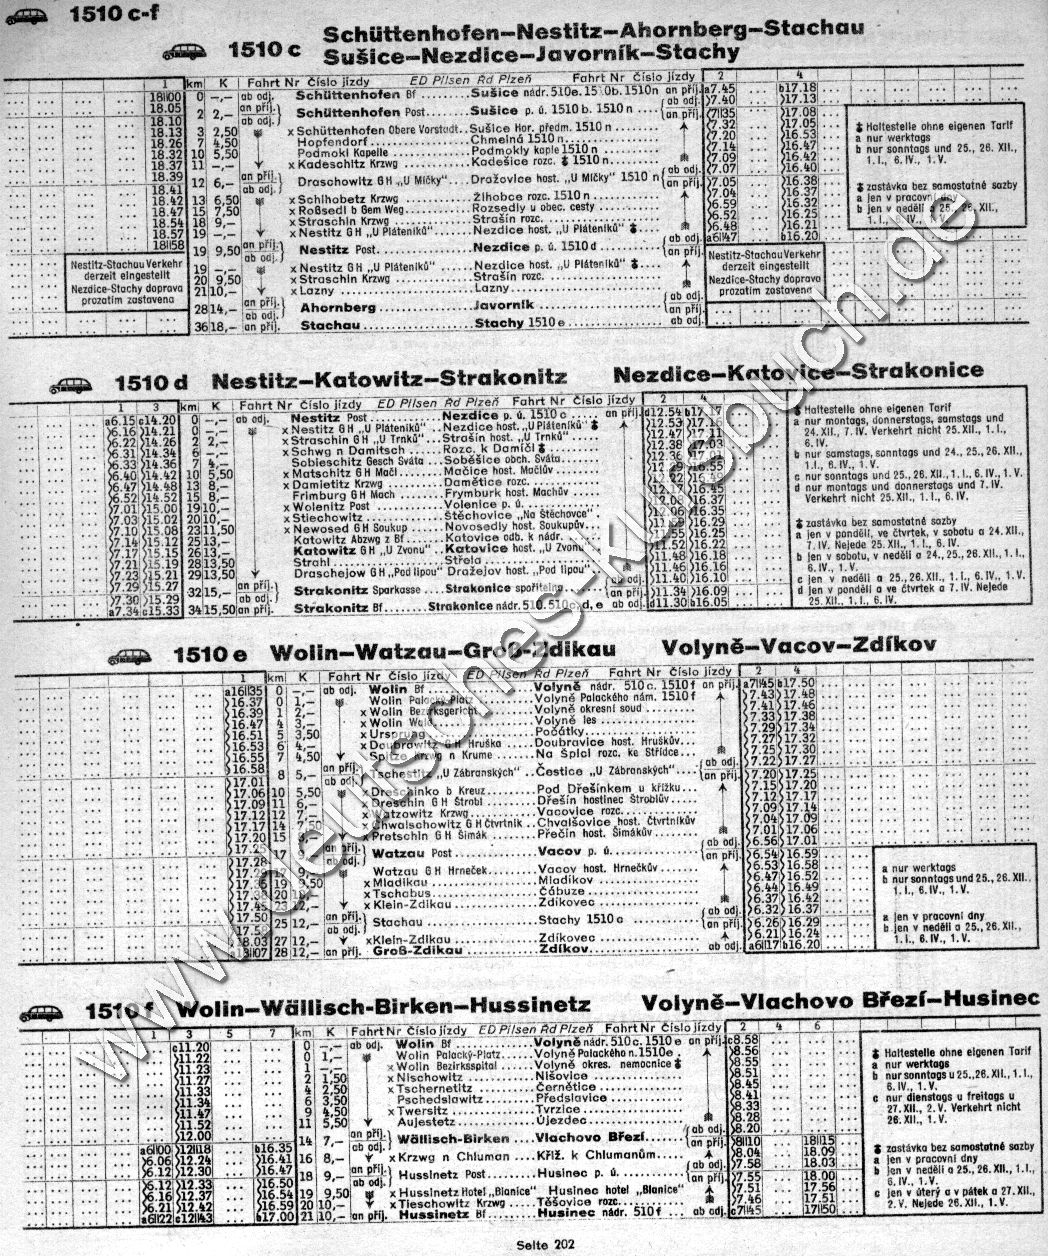 1510 c-f
1510 c Schüttenhofen–Nestitz–Ahornberg–Stachau
Sušice–Nezdice–Javorník–Stachy
1 km K Fahrt Nr Číslo jízdy ED Pilsen Rd Plzeň Fahrt Nr Číslo jízdy 2 4
18 00 0 –,– ab odj. Schüttenhofen Bf Sušice nádr. 510e. 1510b. 1510n an příj. a7.45 b17.18
18.05 2 2,– an příj. Schüttenhofen Post Sušice p. ú. 1510 b. 1510 n ab odj. 7.40 17.13
18.10 ab odj. an příj. 7 35 17.08
18.13 3 2,50 x Schüttenhofen Obere Vorstadt Sušice Hor. předm. 1510 n 7.32 17.05
18.26 7 4,50 Hopfendorf Chmelná 1510 n 7.20 16.53
18.32 10 5,50 Podmokl Kapelle Podmokly kaple 1510 n 7.14 16.47
18.37 11 –,– x Kadeschitz Krzwg Kadešice rozc. 1510 n 7.09 16.42
18.39 12 6,– an příj. Draschowitz GH „U Mičky" Dražovice host. „U Mičky" 1510 n ab odj. 7.07 16.40
18.41 ab odj. an příj. 7.05 16.38
18.42 13 6,50 x Schlhobetz Krzwg Žlhobce rozc. 1510 n 7.04 16.37
18.47 15 7,50 x Roßsedl b Gem Weg Rozsedly u obec. cesty 6.59 16.32
18.54 18 9,– x Straschin Krzwg Strašín rozc. 6.52 16.25
18.57 19 –,– x Nestitz GH „U Pláteníků" Nezdice host. „U Pláteníků" 6.48 16.21
18 58 19 9,50 an příj. Nestitz Post Nezdice p. ú. 1510 d ab odj. a6 47 b16.20
ab odj. an příj.
19 –,– x Nestitz GH „U Pláteníků" Nezdice host. „U Pláteníků"
20 9,50 x Straschin Krzwg Strašín rozc.
21 10,– x Lazny Lazny
28 14,– an příj. ab odj. Ahornberg Javorník ab odj. an příj.
36 18,– an příj. Stachau Stachy 1510 e ab odj.
Nestitz-Stachau Verkehr
derzeit eingestellt
Nezdice-Stachy doprava
prozatím zastavena
Nestitz-Stachau Verkehr
derzeit eingestellt
Nezdice-Stachy doprava
prozatím zastavena
Haltestelle ohne eigenen Tarif
a nur werktags
b nur sonntags und 25., 26. XII.,
1. I., 6. IV., 1. V.
zastávka bez samostatné sazby
a jen v pracovní dny
b jen v neděli a 25., 26. XII.,
1. I., 6. IV., 1. V.
1510 d Nestitz–Katowitz–Strakonitz Nezdice–Katovice–Strakonice
1 3 km K Fahrt Nr Číslo jízdy ED Pilsen Rd Plzeň Fahrt Nr Číslo jízdy 2 4
a6.15 c14.20 0 –,– ab odj. Nestitz Post Nezdice p. ú. 1510 c an příj. d12.54 b17.17
6.16 14.21 0 –,– x Nestitz GH „U Pláteníků" Nezdice host. „U Pláteníků" 12.53 17.16
6.22 14.26 2 2,– x Straschin GH „U Trnků" Strašín host. „U Trnků" 12.47 17.11
6.31 14.34 6 –,– x Schwg n Damitsch Rozc. k Damíči 12.38 17.03
6.33 14.36 7 4,– Sobieschitz Gesch Sváta Soběšice obch. Sváta
6.40 14.42 10 5,50 x Matschitz GH Mačl Mačice host. Mačlův 16.55
6.47 14.48 13 8,– x Damietitz Krzwg Damětice rozc. 16.45
6.52 14.52 15 8,– Frimburg GH Mach Frymburk host. Machův 16.37
7.01 15.00 19 10,– x Wolenitz Post Volenice p. ú. 16.35
7.03 15.02 20 10,– x Stiechowitz Štěchovice „Na Štěchovce" 16.29
7.10 15.08 23 11,50 x Newosed GH Soukup Novosedly host. Soukupův 11.55 16.25
7.14 15.12 25 13,– Katowitz Abzwg z Bf Katovice odb. k nádr. 11.52 16.22
7.17 15.15 26 13,– Katowitz GH „U Zvonu" Katovice host. „U Zvonu" 11.48 16.18
7.21 15.19 28 13,50 Strahl Střela 11.46 16.16
7.23 15.21 29 13,50 Draschejow GH „Pod lipou" Dražejov host. „Pod lipou" 11.40 16.10
7.29 15.27 32 15,– an příj. Strakonitz Sparkasse Strakonice spořitelna ab odj. 11.34 16.09
7.30 15.29 ab odj. an příj.
a7.34 c15.33 34 15,50 an příj. Strakonitz Bf Strakonice nádr. 510. 510c, d, e ab odj. d11.30 b16.05
Haltestelle ohne eigenen Tarif
a nur montags, donnerstags, samstags und
24. XII., 7. IV. Verkehrt nicht 25. XII., 1. I.,
6. IV.
b nur samstags, sonntags und 24., 25., 26. XII.,
1. I., 6. IV., 1. V.
c nur sonntags und 25., 26. XII., 1. I., 6. IV., 1. V.
d nur montags und donnerstags und 7. IV.
Verkehrt nicht 25. XII., 1. I., 6. IV.
zastávka bez samostatné sazby
a jen v pondělí, ve čtvrtek, v sobotu a 24. XII.,
7. IV. Nejede 25. XII., 1. I., 6. IV.
b jen v sobotu, v neděli a 24., 25., 26. XII., 1. I.,
6. IV., 1. V.
c jen v neděli a 25., 26. XII., 1. I., 6. IV., 1. V.
d jen v pondělí a ve čtvrtek a 7. IV. Nejede
25. XII., 1. I., 6. IV.
1510 e Wolin–Watzau–Groß-Zdikau Volyně–Vacov–Zdíkov
1 km K Fahrt Nr Číslo jízdy ED Pilsen Rd Plzeň Fahrt Nr Číslo jízdy 2 4
a16 35 0 –,– ab odj. Wolin Bf Volyně nádr. 510 c. 1510 f an příj. a7 45 b17.50
16.37 0 1,– Wolin Palacký-Platz Volyně Palackého nám. 1510 f 7.43 17.48
16.39 1 2,– x Wolin Bezirksgericht Volyně okresní soud 7.41 17.46
16.47 4 3,– x Wolin Wald Volyně les 7.33 17.38
16.51 5 3,50 x Ursprung Počátky 7.29 17.34
16.53 6 4,– x Doubrawitz GH Hruška Doubravice host. Hruškův 7.27 17.32
16.55 7 4,50 x Spitze Krzwg n Krume Na Špici rozc. ke Střídce 7.25 17.30
16.58 8 5,– an příj. Tschestitz „U Zábranských" Čestice „U Zábranských" ab odj. 7.22 17.27
17.01 ab odj. an příj. 7.20 17.25
17.06 10 5,50 x Dreschinko b Kreuz Pod Dřešínkem u křížku 7.15 17.20
17.09 11 6,– x Dreschin GH Štrobl Dřešín hostinec Štroblův 7.12 17.17
17.12 12 7,– x Watzowitz Krzwg Vacovice rozc. 7.09 17.14
17.17 14 7,50 x Chwalschowitz GH Čtvrtník Chvalšovice host. Čtvrtníkův 7.04 17.09
17.20 15 x Pretschin GH Šimák Přečín host. Šimákův 7.01 17.06
17.25 17 an příj. Watzau Post Vacov p. ú. ab odj. 6.56 17.01
17.28 ab odj. an příj. 6.54 16.59
Watzau GH Hrneček Vacov host. Hrnečkův 6.53 16.58
17.36 19 9,50 x Mladikau Mladíkov 6.47 16.52
17.38 20 x Tschabus Čábuze 6.44 16.49
17.45 23 12,– x Klein-Zdikau Zdíkovec 6.37 16.42
17.50 25 12,– an příj. Stachau Stachy 1510 c ab odj. 6.32 16.37
17.58 ab odj. an příj. 6.26 16.29
18.03 27 12,– x Klein-Zdikau Zdíkovec 6.21 16.24
a18 07 28 12,– an příj. Groß-Zdikau Zdíkov ab odj. a6 17 b16.20
a nur werktags
b nur sonntags und 25., 26. XII.,
1. I., 6. IV., 1. V.
a jen v pracovní dny
b jen v neděli a 25., 26. XII.,
1. I., 6. IV., 1. V.
1510 f Wolin–Wällisch-Birken–Hussinetz Volyně–Vlachovo Březí–Husinec
1 3 5 7 km K Fahrt Nr Číslo jízdy ED Pilsen Rd Plzeň Fahrt Nr Číslo jízdy 2 4 6
c11.20 0 –,– ab odj. Wolin Bf Volyně nádr. 510 c. 1510 e an příj. c8.58
11.22 0 1,– Wolin Palacký-Platz Volyně Palackého n. 1510 e 8.56
11.23 1 –,– x Wolin Bezirksspital Volyně okres. nemocnice 8.55
11.27 2 1,50 x Nischowitz Nišovice 8.51
11.33 4 2,50 x Tschernetitz Černětice 8.45
11.34 6 3,50 Pschedslawitz Předslavice 8.41
11.47 9 4,50 x Twersitz Tvrzice 8.33
11.52 11 5,50 Aujestetz Újezdec 8.28
12.00 14 7,– an příj. Wällisch-Birken Vlachovo Březí ab odj. 8.20
a6 00 12 18 b16.35 ab odj. an příj. 8 10 18 15
6.06 12.24 16.41 16 8,– x Krzwg n Chluman Kříž. k Chlumanům 8.04 18.09
6.12 12.30 16.47 18 9,– an příj. Hussinetz Post Husinec p. ú. ab odj. 7.58 18.03
6.12 12.33 16.50 ab odj. an příj. 7.55 18.00
6.16 12.37 16.54 19 9,50 x Hussinetz Hotel „Blanice" Husinec hotel „Blanice" 7.51 17.56
6.21 12.42 16.59 20 10,– x Tieschowitz Krzwg Těšovice rozc. 7.46 17.51
a6 22 c12 43 b17.00 21 10,– an příj. Hussinetz Bf Husinec nádr. 510 f ab odj. c7 45 17 50
Haltestelle ohne eigenen Tarif
a nur werktags
b nur sonntags u 25., 26. XII., 1. I.,
6. IV., 1. V.
c nur dienstags u freitags u
27. XII., 2. V. Verkehrt nicht
26. XII., 1. V.
zastávka bez samostatné sazby
a jen v pracovní dny
b jen v neděli a 25., 26. XII., 1. I.,
6. IV., 1. V.
c jen v úterý a v pátek a 27. XII.,
2. V. Nejede 26. XII., 1. V.
Seite 202
www.deutsches-kursbuch.de